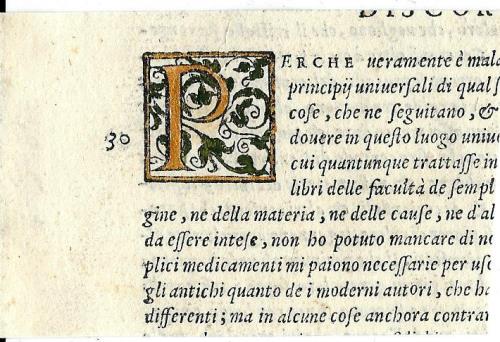 DISCOR
30
PERCHE ueramente è mala
principij uniuersali di qual s
cose, che ne seguitano, &
douere in questo luogo uniue
cui quantunque trattasse in
libri delle facultà de sempl
gine, ne della materia, ne delle cause, ne d'al
da essere intese, non ho potuto mancare di no
plici medicamenti mi paiono necessarie per uso
gli antichi quanto de i moderni autori, che ha
differenti; ma in alcune cose anchora contrar